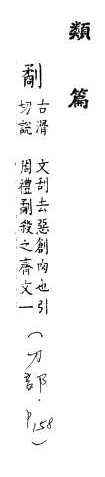 類篇
劀
古滑切說文刮去惡創肉也引周禮劀殺之齊文一
(刀部·P158)